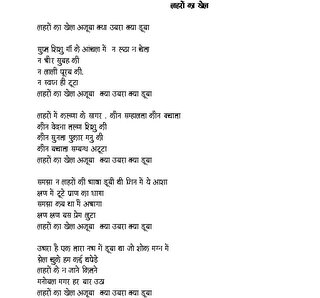 लहरों का खेल
लहरों का खेला अजूबा क्या उबरा क्या डूबा
सुप्त शिशु माँ के आंचल में न रूठा न बोला
न भोर सुबह की
न लाली पूरब की.
न स्वप्न ही टूटा
लहरों का खेला अजूबा क्या उबरा क्या डूबा
लहरों में करूणा के सागर , कौन सम्हालता कौन बचाता
कौन वेदना तरूण शिशु की
कौन सुनता पुकार मनु की
कौन बचाता सम्बन्ध अटूटा
लहरों का खेला अजूबा क्या उबरा क्या डूबा
समझा न लहरों की भाषा डूबी थी जिन में ये आशा
क्षण में टूटे प्राण का धागा
समझा कब था मैं अभागा
क्षण क्षण बस प्रेम लुटा
लहरों का खेला अजूबा क्या उबरा क्या डूबा
उभरा है एक तारा नभ में डूबा था जो शोक मग्न में
झेल चुके हम कई थपेड़े
लहरों के न जाने कितने
मनोबल मगर हर बार उठा
लहरों का खेला अजूबा क्या उबरा क्या डूबा